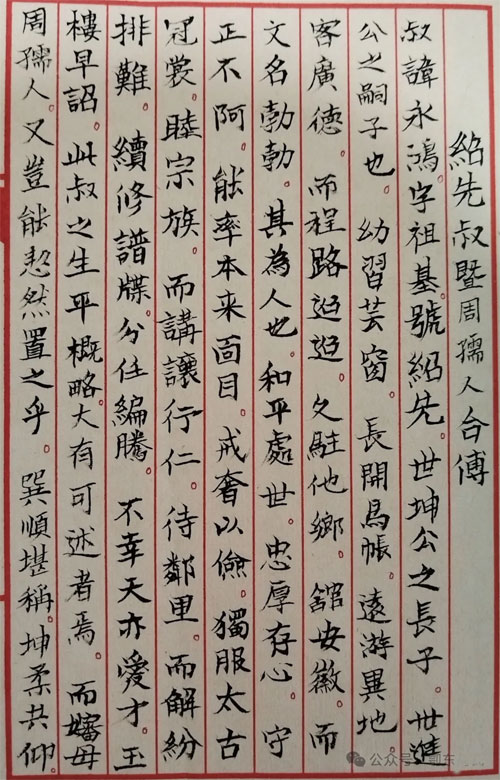 紹先叔暨周孺人合傳
叔諱永鴻。字祖基。號紹先。世坤公之長子。世進
公之嗣子也。幼習芸窗。長開馬帳。遠游異地。
客廣德。而程路迢迢。久駐他鄉。舘安徽。而
文名勃勃。其為人也。和平處世。忠厚存心。守
正不阿。能率本来面目。戒奢以儉。獨服太古
冠裳。睦宗族。而講讓行仁。待鄰里。而解紛
排難。續修譜牒。分任編騰。不幸天亦愛才。玉
樓早詔。此叔之生平概略。大有可述者焉。而嬸母
周孺人。又豈能恝然置之乎。巽順堪稱。坤柔共仰。
公众号